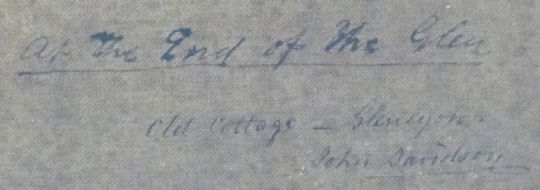 At the End of the Glen
Old Cottage — Glenlyon.
John Davidson